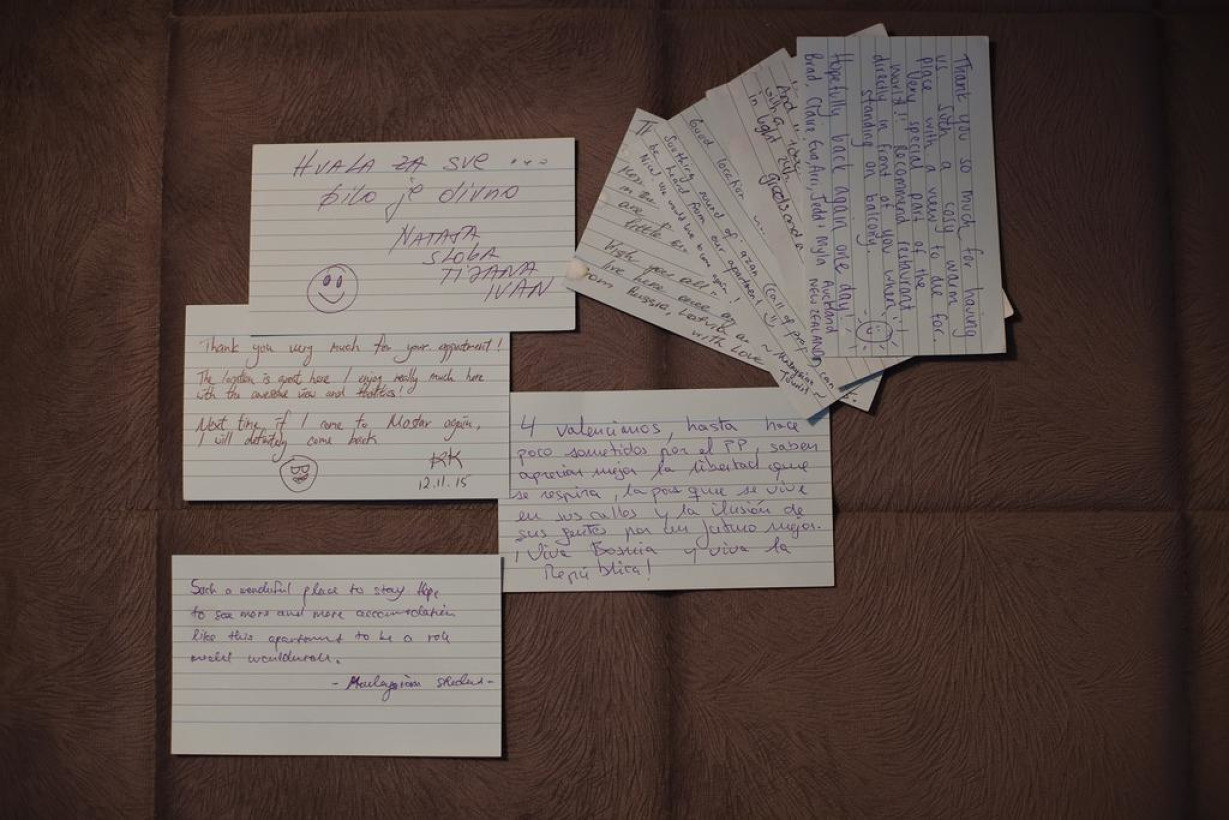 HVALA ZA SVE ...
bilo je divno
NATAŠA
SLOBA
TIJANA
IVAN
Thank you very much for your appartment!
The location is great here I enjoy really much here
with the awesome view and
Next time, if I come to Mostar again,
I will definitely come back
KK
12.11.15
Such a wonderful place to stay. Hope
to see more and more accomodation
like this apartment to be a role
model
- Malaysian student -
4 valencianos, hasta hace
poco sometidos por el PP, saben
apreciar mejor la libertad que
se respira, la paz que se vive
en sus calles y la ilusión de
sus gentes por un futuro mejor.
¡Viva Bosnia y viva la
República!
in the
are
little
High you all
live here once
from Russia, Latvia
with Love
Good location
Soothing sound of azan (call of prayer) can
be heard from our apartment!
Nice! We would love to come again!
~ Malaysian
Tourist ~
And
with a
in light
goods and a
Thank you so much for having
us such a cosy warm
place with a view to die for.
Very special part of the
world!! Recommend restaurant
directly in front of you when
standing on balcony.
Hopefully back again one day!
Brad, Claire, Eva, Arri, Jedd & Myla Auckland
NEW ZEALAND